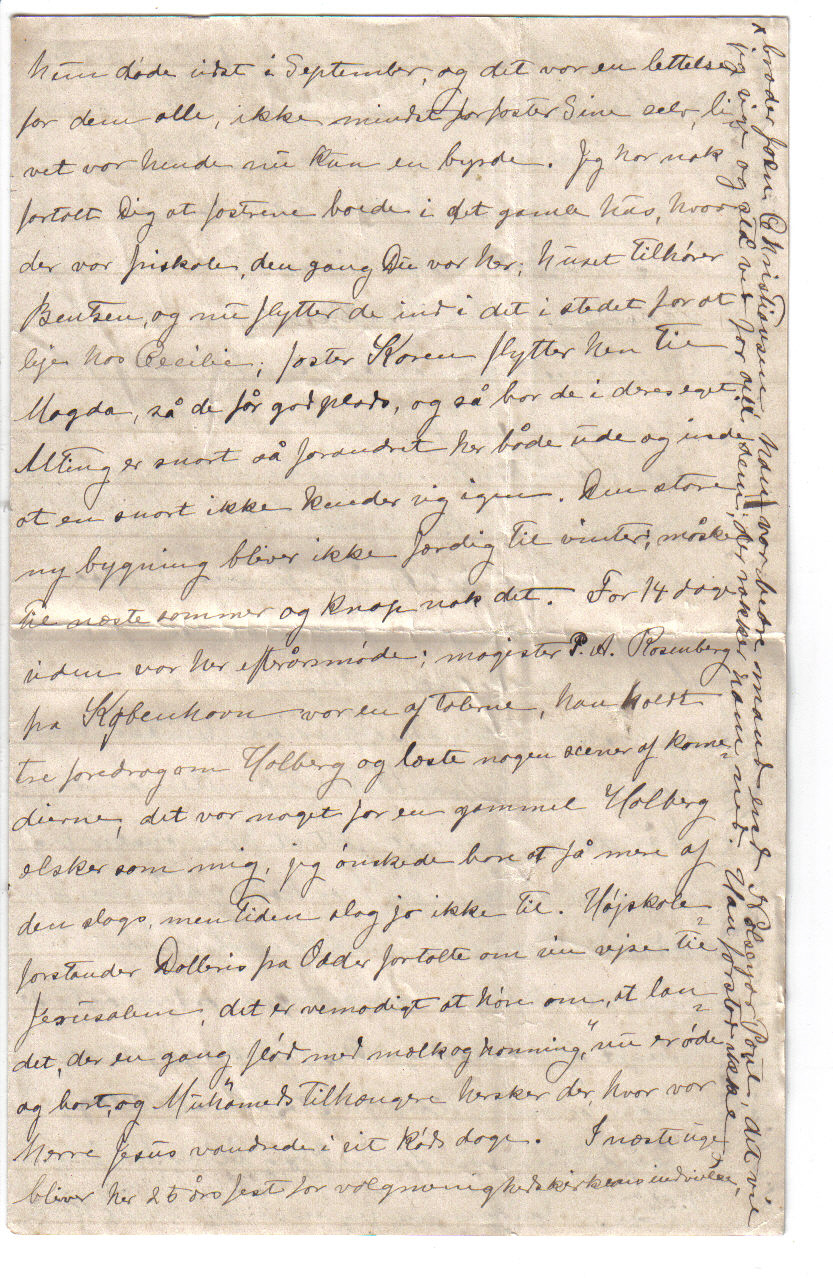 hun døde sidst i September, og det var en lettelse
for dem alle, ikke mindst for faster Sine selv, li
vet var hende nu kun en byrde. Jeg har nok
fortalt Dig at fastrene boede i det gamle hus, hvor
der var friskole, den gang Du var her; huset tilhører
Bentsen, og nu flytter de ind i det i stedet for at
leje hos Cecilie; faster Karen flytter hen til
Magda, så de får god plads, og så bor de i deres eget.
Alting er snart så forandret her både ude og inde
at en snart ikke kender sig igen. Den store
ny bygning bliver ikke færdig til vinter; måske
til næste sommer og knap nok det. For 14 dage
siden var her efterårsmøde; magister P. A. Rosenberg
fra København var en af talerne, han holdt
tre foredrag om Holberg og læste nogen scener af kome-
dierne, det var noget for en gammel Holberg
elsker som mig, jeg ønskede bare at få mere af
den slags, men tiden slog jo ikke til. Højskole-
forstander Dolleris fra Odder fortalte om sin rejse til
Jerusalem, det er vemodigt at høre om, at lan-
det, der en gang "flød med mælk og honning," nu er øde
og bart, og Muhameds tilhængere hersker der, hvor vor
Herre Jesus vandrede i sit Køds dage. I næste uge
bliver her 25 års fest for valgmenighedskirkens indvielse,
broder Joen Christiansen, han var bedre mand end Nolsoyar Poul, det vil
jeg sige og stå ved for alle dem, der rakker ham ned. Han forstod ikke